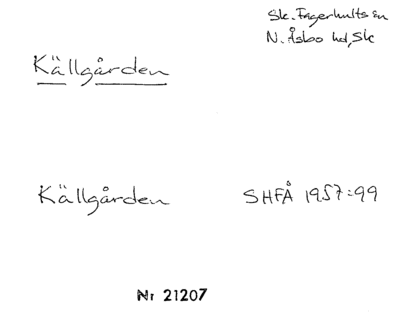 Sk. Fagerhults sn
N. Åsbo hd, Sk
Källgården
Källgården SHFÅ 1957:99
Nr 21207